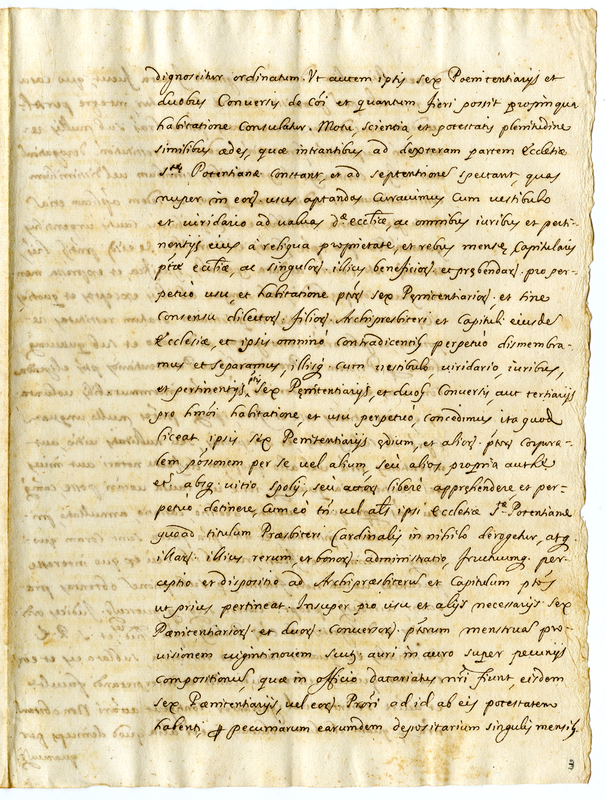 dignoscitur ordinatum. Ut autem ipsis sex Poenitentiarijs et
duobus Conversis de cõi et quantum fieri possit propinqua
habitatione consulatur. Motu, scientia et potestatis plenitudine
similibus ædes, quæ intrantibus ad dexteram partem Ecclesiæ
S.tæ Potentianæ constant, et ad septentrionẽ spectant, quas
nuper in eor̃ usus aptandas curavimus cum vestibulo
et viridario ad valvas d.æ eccliæ, ac omnibus iuribus et perti-
nentijs eius à reliqua proprietate, et rebus mensę Capitularis
p̃tæ eccliæ, ac singulor̃ illius beneficior̃ et prębendar̃ pro per-
petuò usu, et habitatione p̃tor̃ sex Pęnitentiarior̃ et sine
consensu dilector̃ filior̃ Archipresbiteri et Capituli eiusdẽ
Ecclesiæ, et ipsis omninò contradicentib̃ perpetuò dismembra-
mus et separamus, illisq̃ cum vestibulo viridario, iuribus,
et pertinentijs p̃tis sex Pęnitentiarijs, et duob̃ Conversis aut tertiarijs
pro hmõi habitatione, et usu perpetuò, concedimus ita quod
liceat ipsis sex Pęnitentiarijs ędium, et alior̃ p̃tor̃ corpora-
lem p̃ssionem per se, vel alium, seù alios, propria autħe
et absq̃ vitio spolij, seù liberè apprehendere et per-
petuò detinere, cum eo tñ vel al̃s ipsi Ecclesiæ S.tæ Potentianæ
quoad titulum Præsbiteri Cardinalis in nihilo derogetur, atq̃
illar̃ illius rerum, et bonor̃ administratio, fructuumq̃ per-
ceptio et dispositio ad Archipræsbiterũ et Capitulum p̃tos
ut prius pertineat. Insuper pro usu et alijs necessarijs sex
Pænitentiarior̃ et duor̃ Conversor̃ p̃torum menstruã pro-
visionem vigintinovem scut̃ auri in auro super pecunijs
compositionũ quæ in officio datariatus ñri fiunt, eisdem
sex Pænitentiarijs, vel eor̃ Priori ad id ab eis potestatem
habenti, ꝓ pecuniarum earundem depositarium singulis mensib̃
3